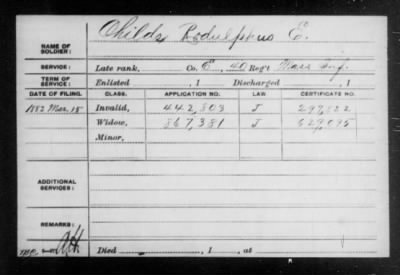 Childs Rodulphus E.
NAME OF SOLDIER:
SERVICE: Late rank, Co. E, 40 Reg't Mass Inf.
TERM OF SERVICE: Enlisted , 1 Discharged , 1
DATE OF FILING. CLASS. APPLICATION NO. LAW. CERTIFICATE NO.
1882 Mar. 18 Invalid, 442,803 J 297,822
Widow, 867,381 J 629,095
Minor,
ADDITIONAL SERVICES:
REMARKS:
Died , 1 , at